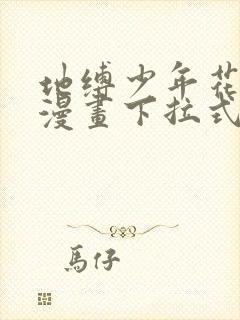 地缚少年花
漫畫下拉式
馬仔